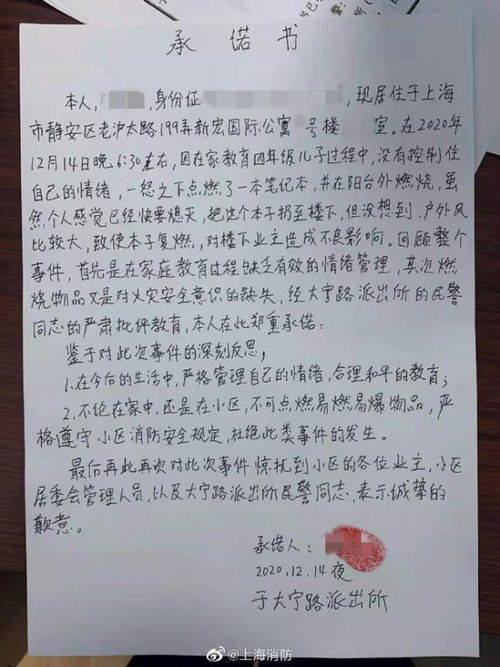 承诺书
本人,身份证,现居住于上海
市静安区老沪太路199弄新宏国际公寓号楼室。在2020年
12月14日晚6:30左右,因在家教育四年级儿子过程中,没有控制住
自己的情绪,一怒之下点燃了一本笔记本,并在阳台外燃烧,虽
然个人感觉已经快要熄灭,把这个本子扔至楼下,但没想到,户外风
比较大,致使本子复燃,对楼下业主造成不良影响。回顾整个
事件,首先是在家庭教育过程缺乏有效的情绪管理,其次燃
烧物品又是对火灾安全意识的缺失,经大宁路派出所的民警
同志的严肃批评教育,本人在此郑重承诺:
鉴于对此次事件的深刻反思;
1.在今后的生活中,严格管理自己的情绪,合理和平的教育;
2.不论在家中,还是在小区,不可点燃易燃易爆物品,严
格遵守小区消防安全规定,杜绝此类事件的发生。
最后再此再次对此次事件惊扰到小区的各位业主,小区
居委会管理人员,以及大宁路派出所民警同志,表示诚挚的
歉意。
承诺人:
2020.12.14夜
于大宁路派出所
@上海消防